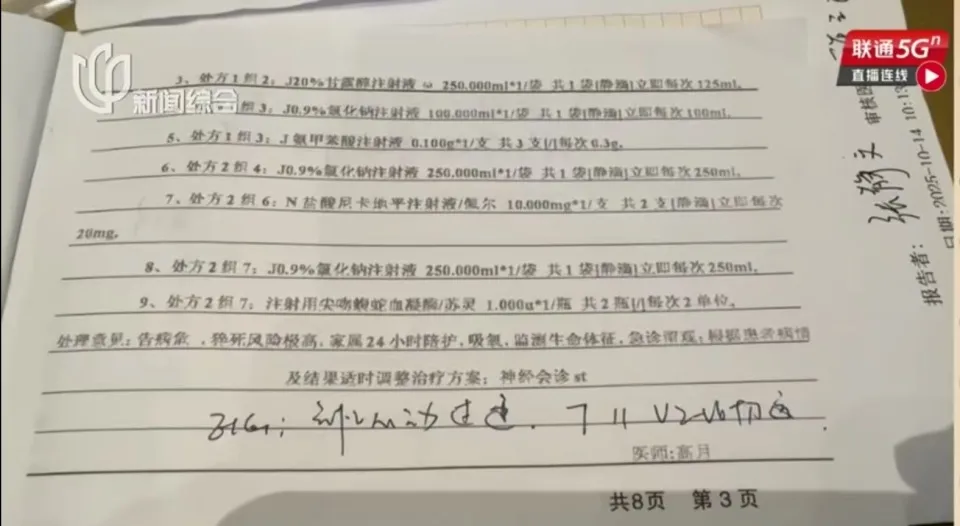 新闻综合
联通5Gⁿ
直播连线
3、处方1组2：J20%甘露醇注射液 ω 250.000ml*1/袋 共1袋|静滴|立即每次125ml。
组3：J0.9%氯化钠注射液 100.000ml*1/袋 共1袋|静滴|立即每次100ml。
5、处方1组3：J氨甲苯酸注射液 0.100g*1/支 共3支|/|每次0.3g。
6、处方2组4：J0.9%氯化钠注射液 250.000ml*1/袋 共1袋|静滴|立即每次250ml。
7、处方2组6：N盐酸尼卡地平注射液/佩尔 10.000mg*1/支 共2支|静滴|立即每次
20mg。
8、处方2组7：J0.9%氯化钠注射液 250.000ml*1/袋 共1袋|静滴|立即每次250ml。
9、处方2组7：注射用尖吻蝮蛇血凝酶/苏灵 1.000u*1/瓶 共2瓶|/|每次2单位。
处理意见：告病危，猝死风险极高，家属24小时陪护，吸氧，监测生命体征，急诊留观；根据患者病情
及结果适时调整治疗方案；神经会诊st
医师：高月
共8页 第3页
报告者：
审核医
日期：2025-10-14 10:13